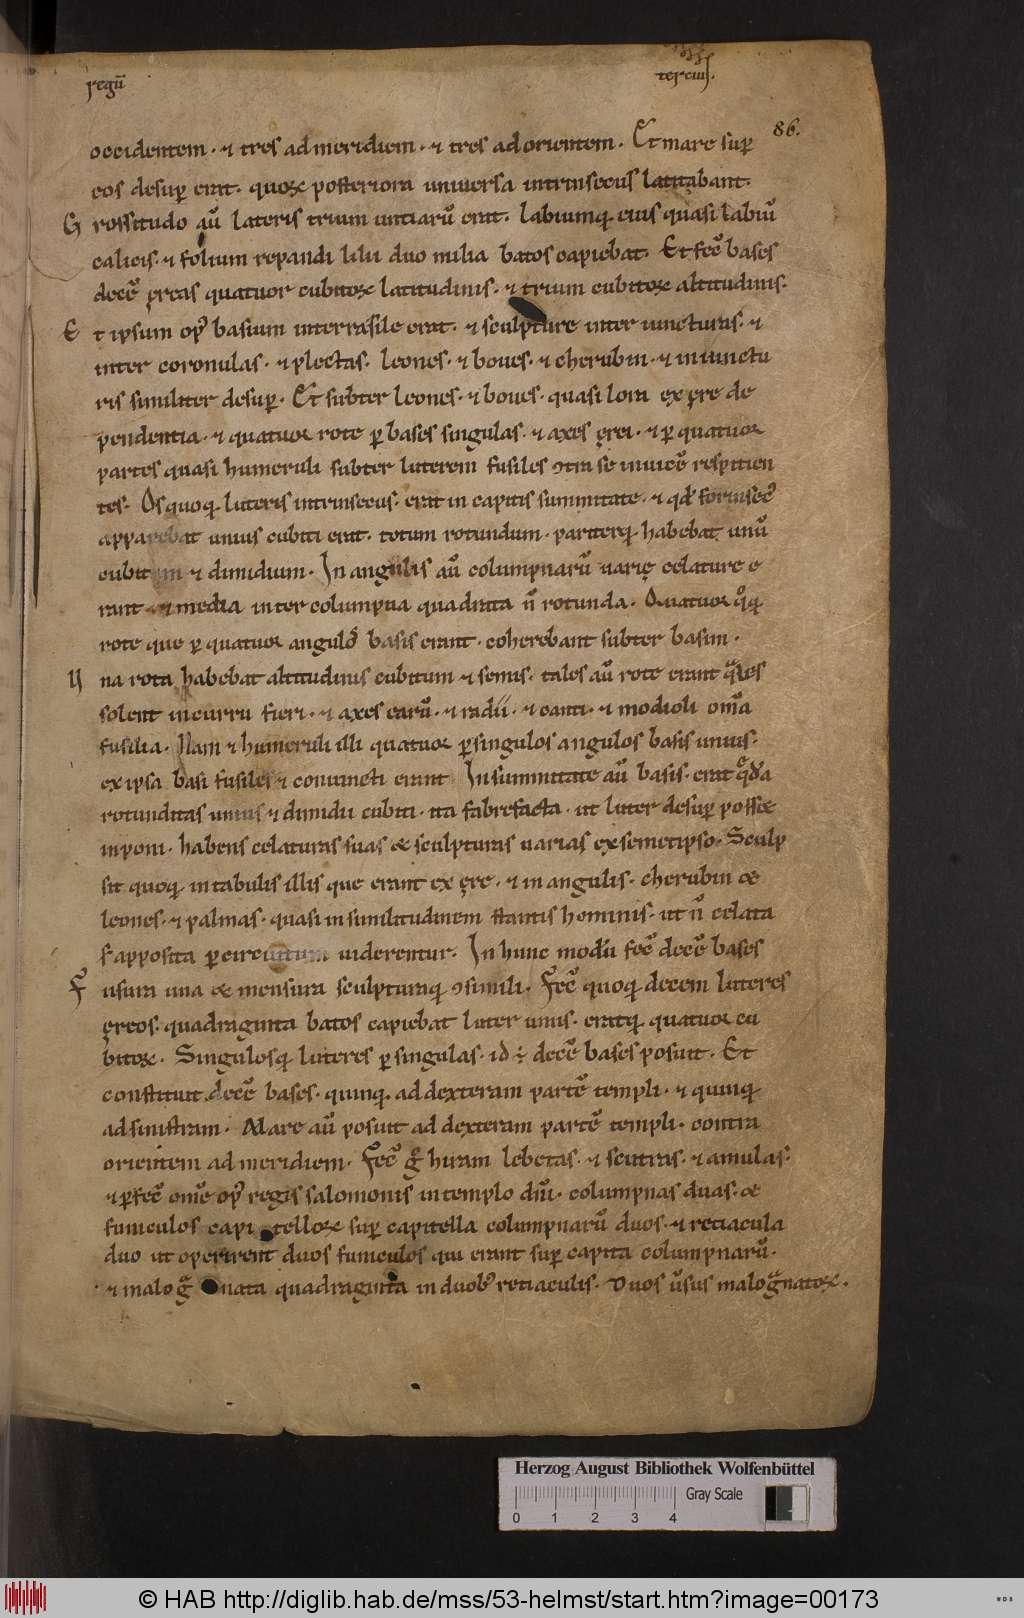 regū
terciuſ.
86.
occidentem · ⁊ tres ad meridiem · ⁊ tres ad orientem . Et mare suꝑ
eos desuꝑ erat . quoꝝ posteriora uniuersa intrinsecus latitabant .
G rossitudo aū lateris trium unciarū erat . labiumq; eius quasi labiū
calicis · ⁊ folium repandi lilii duo milia batos capiebat . Et fec̄ bases
decē ęreas quatuor cubitoꝝ latitudinis · ⁊ trium cubitoꝝ altitudinis .
E t ipsum op᷒ basium interrasile erat · ⁊ sculpture inter iuncturas · ⁊
inter coronulas · ⁊ plectas . leones · ⁊ boues · ⁊ cherubin · ⁊ in iunctu
ris similiter desuꝑ . Et subter leones · ⁊ boues · quasi lora ex ęre de
pendentia · ⁊ quatuor rote ꝑ bases singulas · ⁊ axes ęrei · ⁊ ꝑ quatuor
partes quasi humeruli subter luterem fusiles ꝯtra se inuicē respicien
tes . Os quoq; luteris intrinsecus · erat in capitis summitate · ⁊ qd̄ forinsec᷒
apparebat unius cubiti erat · totum rotundum · pariterq; habebat unū
cubitum ⁊ dimidium . In angulis aū columpnarū uarię celature e
rant ⁊ media inter columpnia quadrata n̄ rotunda . Quatuor qͦq;
rote que ꝑ quatuor angulos basis erant · coherebant subter basim .
U na rota habebat altitudinis cubitum ⁊ semis · tales aū rote erant qͣles
solent in curru fieri · ⁊ axes earū · ⁊ radii · ⁊ canti · ⁊ modioli om̄a
fusilia . Nam ⁊ humeruli illi quatuor ꝑ singulos angulos basis unius ·
ex ipsa basi fusiles ⁊ coniuncti erant In summitate aū basis · erat qͣꝺa
rotunditas unius ⁊ dimidii cubiti · ita fabrefacta · ut luter desuꝑ posset
inponi · habens celaturas suas & sculpturas uarias ex semetipso . Sculp
sit quoq; in tabulis illis que erant ex ęre · ⁊ in angulis · cherubin &
leones · ⁊ palmas · quasi in similitudinem stantis hominis · ut n̄ celata
s; apposita ꝑ circuitum uiderentur . In hunc modū fec̄ decē bases
F usura una & mensura sculpturaq; ꝯsimili . Fec̄ quoq; decem luteres
ęreos . quadraginta batos capiebat luter unus · eratq; quatuor cu
bitoꝝ . Singulosq; luteres ꝑ singulas · id ē decē bases posuit . Et
constituit decē bases · quinq; ad dexteram partē templi · ⁊ quinq;
ad sinistram . Mare aū posuit ad dexteram partē templi · contra
orientem ad meridiem . Fec̄ gͦ hiram lebetas · ⁊ scutras · ⁊ amulas ·
⁊ ꝑfec̄ om̄e op᷒ regis salomonis in templo dn̄i · columpnas duas · &
funiculos capi telloꝝ suꝑ capitella columpnarū duos · ⁊ retiacula
duo ut operirent duos funiculos qui erant suꝑ capita columpnarū ·
· ⁊ malogͣ nata quadraginta in duob᷒ retiaculis . Duos ūsus malogͣnatoꝝ ·
Herzog August Bibliothek Wolfenbüttel
Gray Scale
0 1 2 3 4
© HAB http://diglib.hab.de/mss/53-helmst/start.htm?image=00173